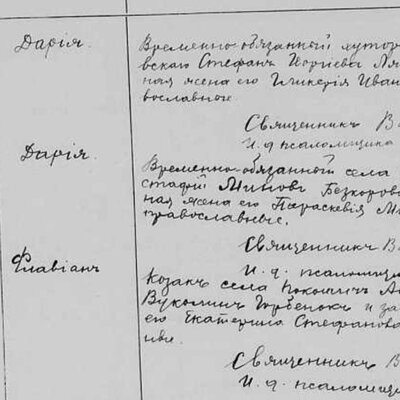 Дарія.
Временно-обязанный хутор
вскаго Стефанъ Порѣева
ная жена его Гликерія Иван
вославное.
Священникъ В
И. д. псаломщика
Дарія.
Временно-обязанной села
стафій Миновъ Безкоров
ная жена его Параскевія М
православные.
Священникъ В
И. д. псаломщи
Флавіанъ
Козакъ села
Горбенокъ и за
его Екатерина Стефанов
Священникъ В
И. д. псаломщи